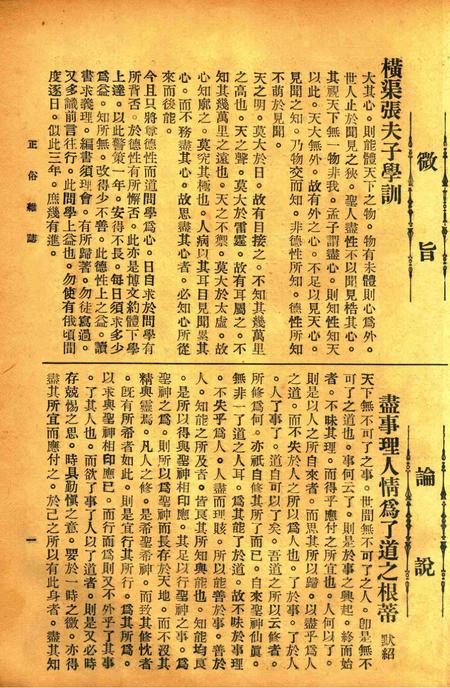 微旨
橫渠張夫子學訓
大其心。則能體天下之物。物有未體則心為外。
世人止於聞見之狹。聖人盡性不以聞見梏其心。
其視天下無一物非我。孟子謂盡心。則知性知天
以此。天大無外。故有外之心。不足以見天心。
見聞之知。乃物交而知。非德性所知。德性所知
不萌於見聞。
天之明。莫大於日。故有目接之。不知其幾萬里
之高也。天之聲。莫大於雷霆。故有耳屬之。不
知其幾萬里之遠也。天之不禦。莫大於太虛。故
心知廓之。莫究其極也。人病以其耳目見聞累其
心。而不務盡其心。故思盡其心者。必知心所從
來而後能。
今且只將尊德性而道問學為心。日自求於問學有
所背否。於德性有所懈否。此亦是博文約禮下學
上達。以此警策一年。安得不長。每日須求多少
為益。知所無。改得少不善。此德性上之益。讀
書求義理。編書須理會。有所歸著。勿徒寫過。
又多識前言往行。此問學上益也。勿使有俄頃間
度逐日。似此三年。庶幾有進。
正俗雜誌
論說
盡事理人情為了道之根蒂 默紹
天下無不可了之事。世間無不可了之人。卽是無不
可了之道也。事何云了。則是於事之興起。終而始
者。不昧其理。而得乎應付之所宜也。人何以了。
則是以人之所自來者。而思其所以歸。以盡乎為人
之道。而不失於人之所以為人也。了於事。了於人
。人了事了。道自可以了矣。吾道之所以云修者。
所修為何。亦祇自修其所了而已。自來聖神仙眞。
無非一了道之人耳。為其能了於道。故不昧於事理
。不失乎為人。人盡而理賅。所以能善於事。善於
人。知能之所及者。皆良其所知與能也。知能均良
。是所以得與聖神之相印應。其足以行聖神之事。為
聖神之為。則所以為聖神而長存於天地。而不沒其
精與靈焉。凡人之修。是希聖希神。而致其修忱者
。既有所希者如此。則是宜行其所行。為其所為。
以求與聖神相印應已。而行而為則又不外乎了其事
。了其人也。而欲了事了人以了道者。則是又必時
存兢惕之思。時具勤愼之意。要於一時之徼。亦得
盡其所宜而應付之。於己之所以有此身者。盡其知
一